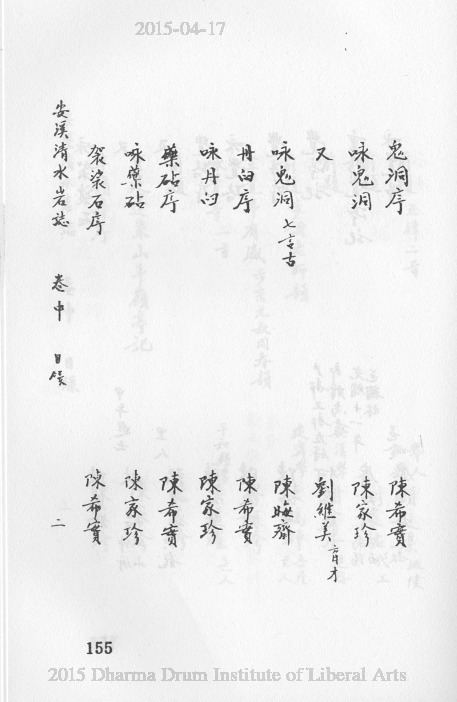 2015-04-17
鬼洞序 陳希實
咏鬼洞 陳家珍
又 劉維美
咏鬼洞 七言古 陳晦齋
丹臼序 陳希實
咏丹臼 陳家珍
藥砧序 陳希實
咏藥砧 陳家珍
袈裟石序 陳希實
安溪清水岩誌 卷中 目錄 二
155
2015 Dharma Drum Institute of Liberal Arts